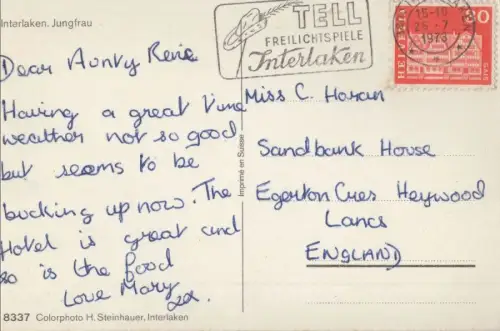 Interlaken. Jungfrau
TELL
FREILICHTSPIELE
Interlaken
15-19
26-7
1978
HELVETIA
20
GAIS
Dear Aunty Renie
Having a great time
weather not so good
but seems to be
bucking up now. The
Hotel is great and
so is the food
Love Mary
xx.
Imprimé en Suisse
Miss C. Horan
Sandbank House
Egerton Cres Heywood
Lancs
ENGLAND
8337 Colorphoto H. Steinhauer, Interlaken